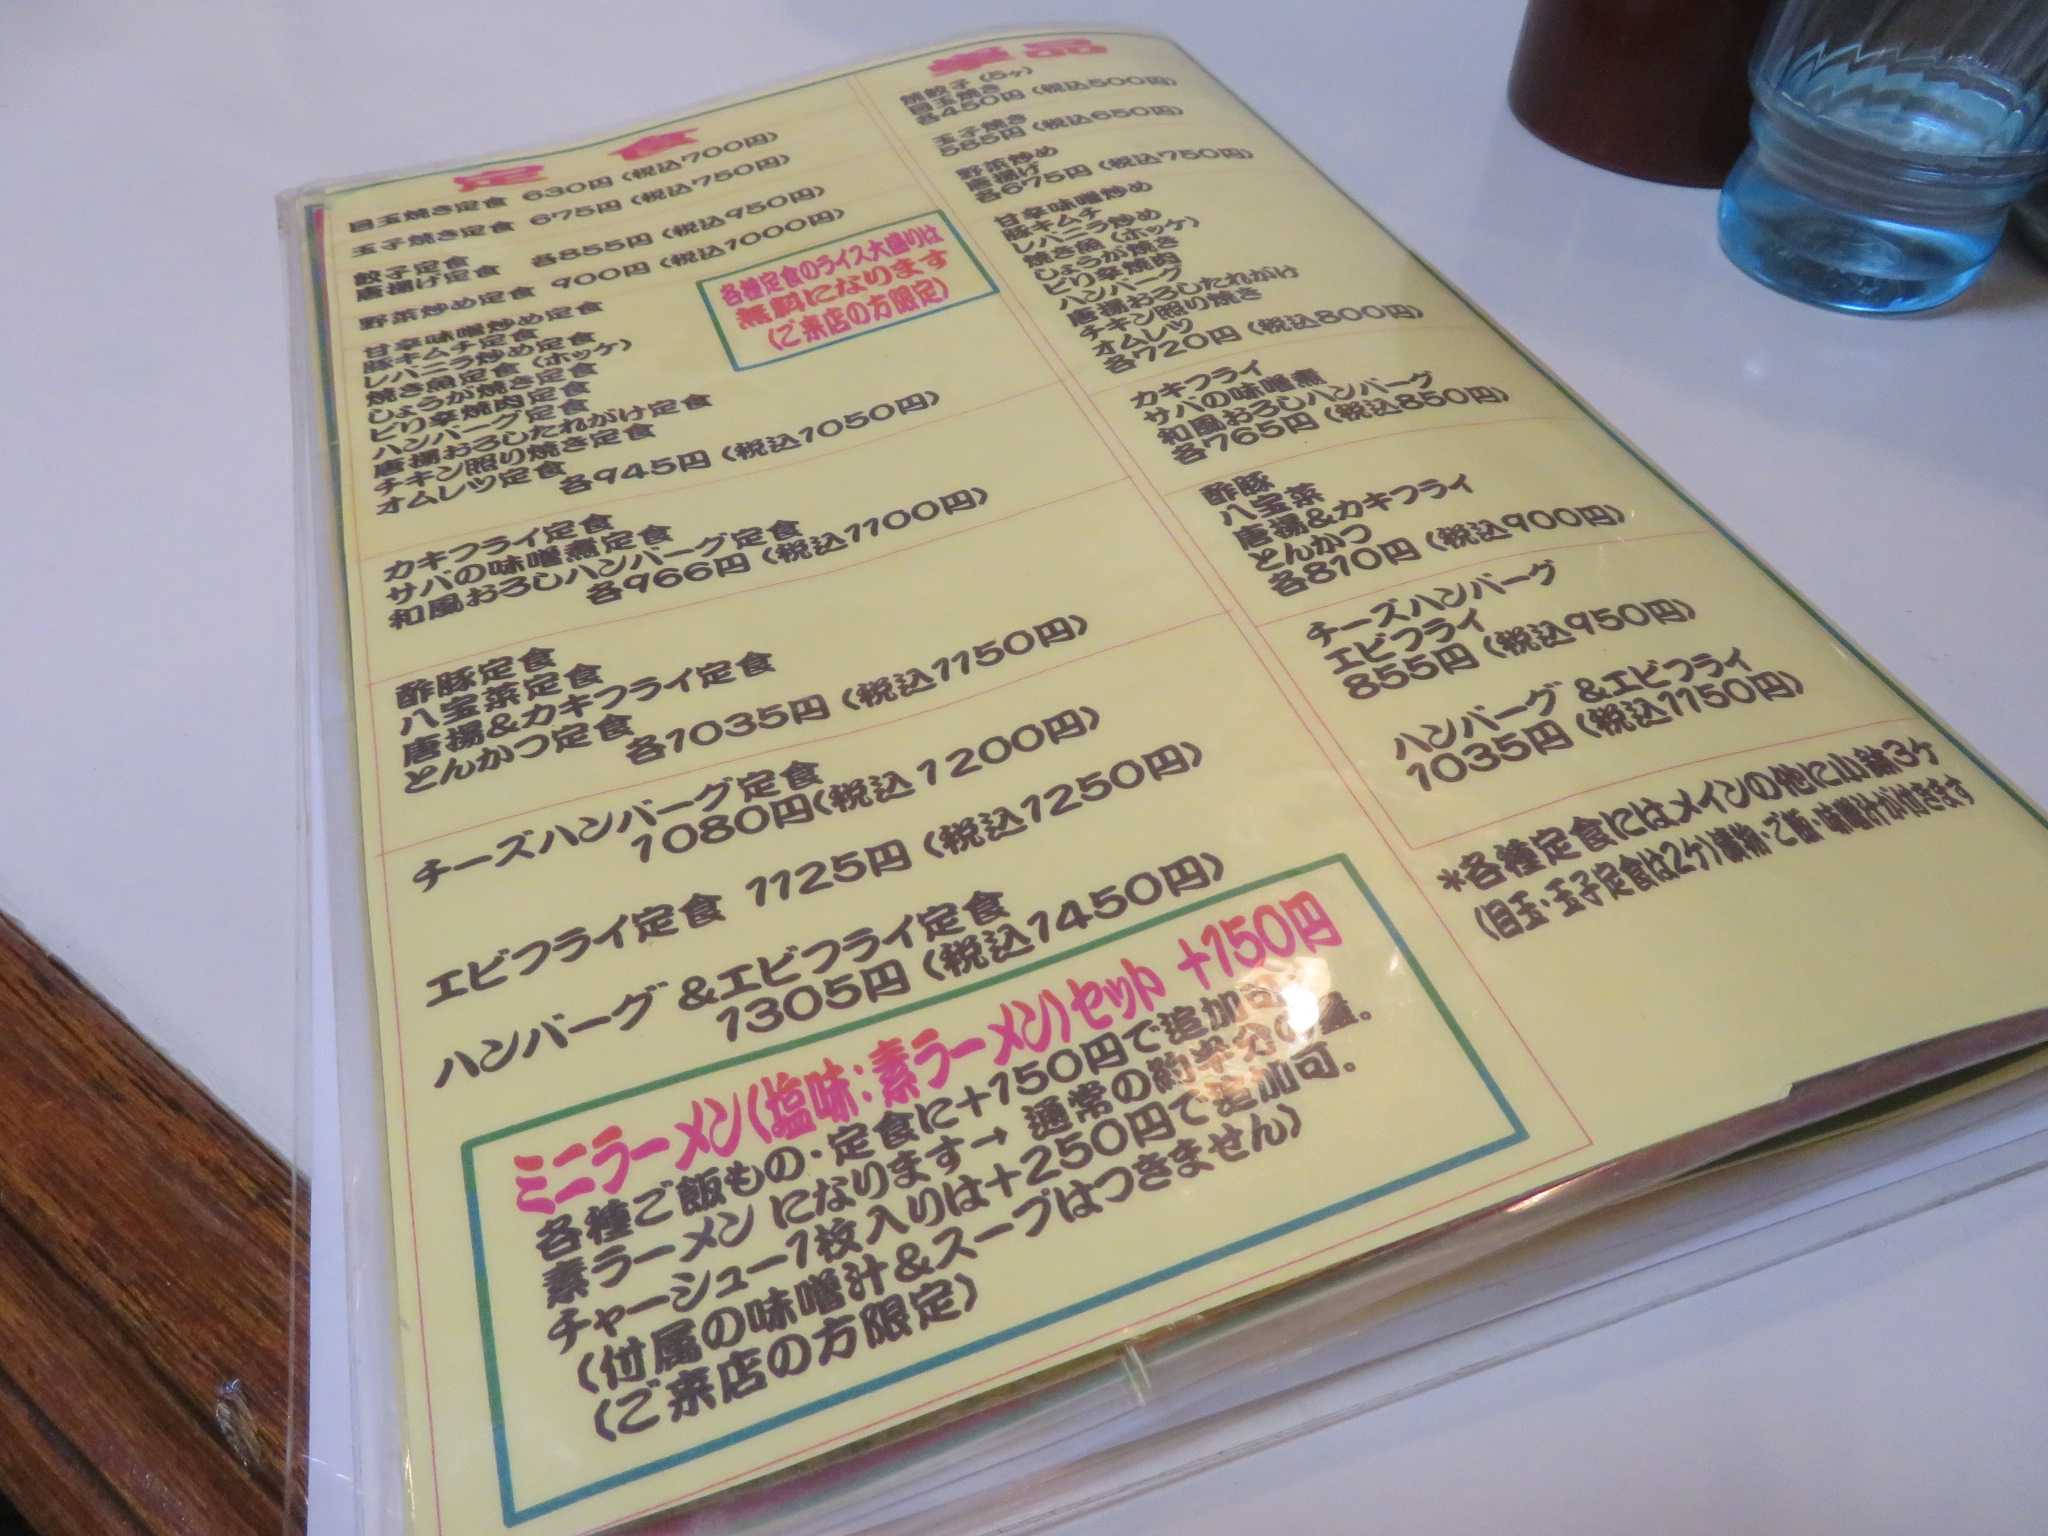 定食
目玉焼き定食 630円(税込700円)
玉子焼き定食 675円(税込750円)
餃子定食
唐揚げ定食 各855円(税込950円)
野菜炒め定食 900円(税込1000円)
甘辛味噌炒め定食
豚キムチ定食
レバニラ炒め定食
焼き魚定食(ホッケ)
しょうが焼き定食
ピリ辛焼肉定食
ハンバーグ定食
唐揚おろしたれがけ定食
チキン照り焼き定食
オムレツ定食
各945円(税込1050円)
カキフライ定食
サバの味噌煮定食
和風おろしハンバーグ定食
各966円(税込1100円)
酢豚定食
八宝菜定食
唐揚&カキフライ定食
とんかつ定食
各1035円(税込1150円)
チーズハンバーグ定食
1080円(税込1200円)
エビフライ定食 1125円(税込1250円)
ハンバーグ&エビフライ定食
1305円(税込1450円)
各種定食のライス大盛りは
無料になります
(ご来店の方限定)
ミニラーメン(塩味:素ラーメン)セット +150円
各種ご飯もの・定食に+150円で追加可
素ラーメン になります→ 通常の約半分の量。
チャーシュー1枚入りは+250円で追加可。
(付属の味噌汁&スープはつきません)
(ご来店の方限定)
単品
焼餃子(5ヶ)
目玉焼き
各450円(税込500円)
玉子焼き
585円(税込650円)
野菜炒め
唐揚げ
各675円(税込750円)
甘辛味噌炒め
豚キムチ
レバニラ炒め
焼き魚(ホッケ)
しょうが焼き
ピリ辛焼肉
ハンバーグ
唐揚おろしたれがけ
チキン照り焼き
オムレツ
各720円(税込800円)
カキフライ
サバの味噌煮
和風おろしハンバーグ
各765円(税込850円)
酢豚
八宝菜
唐揚&カキフライ
とんかつ
各810円(税込900円)
チーズハンバーグ
エビフライ
855円(税込950円)
ハンバーグ&エビフライ
1035円(税込1150円)
*各種定食にはメインの他に小鉢3ヶ
(目玉・玉子定食は2ケ)漬物・ご飯・味噌汁が付きます